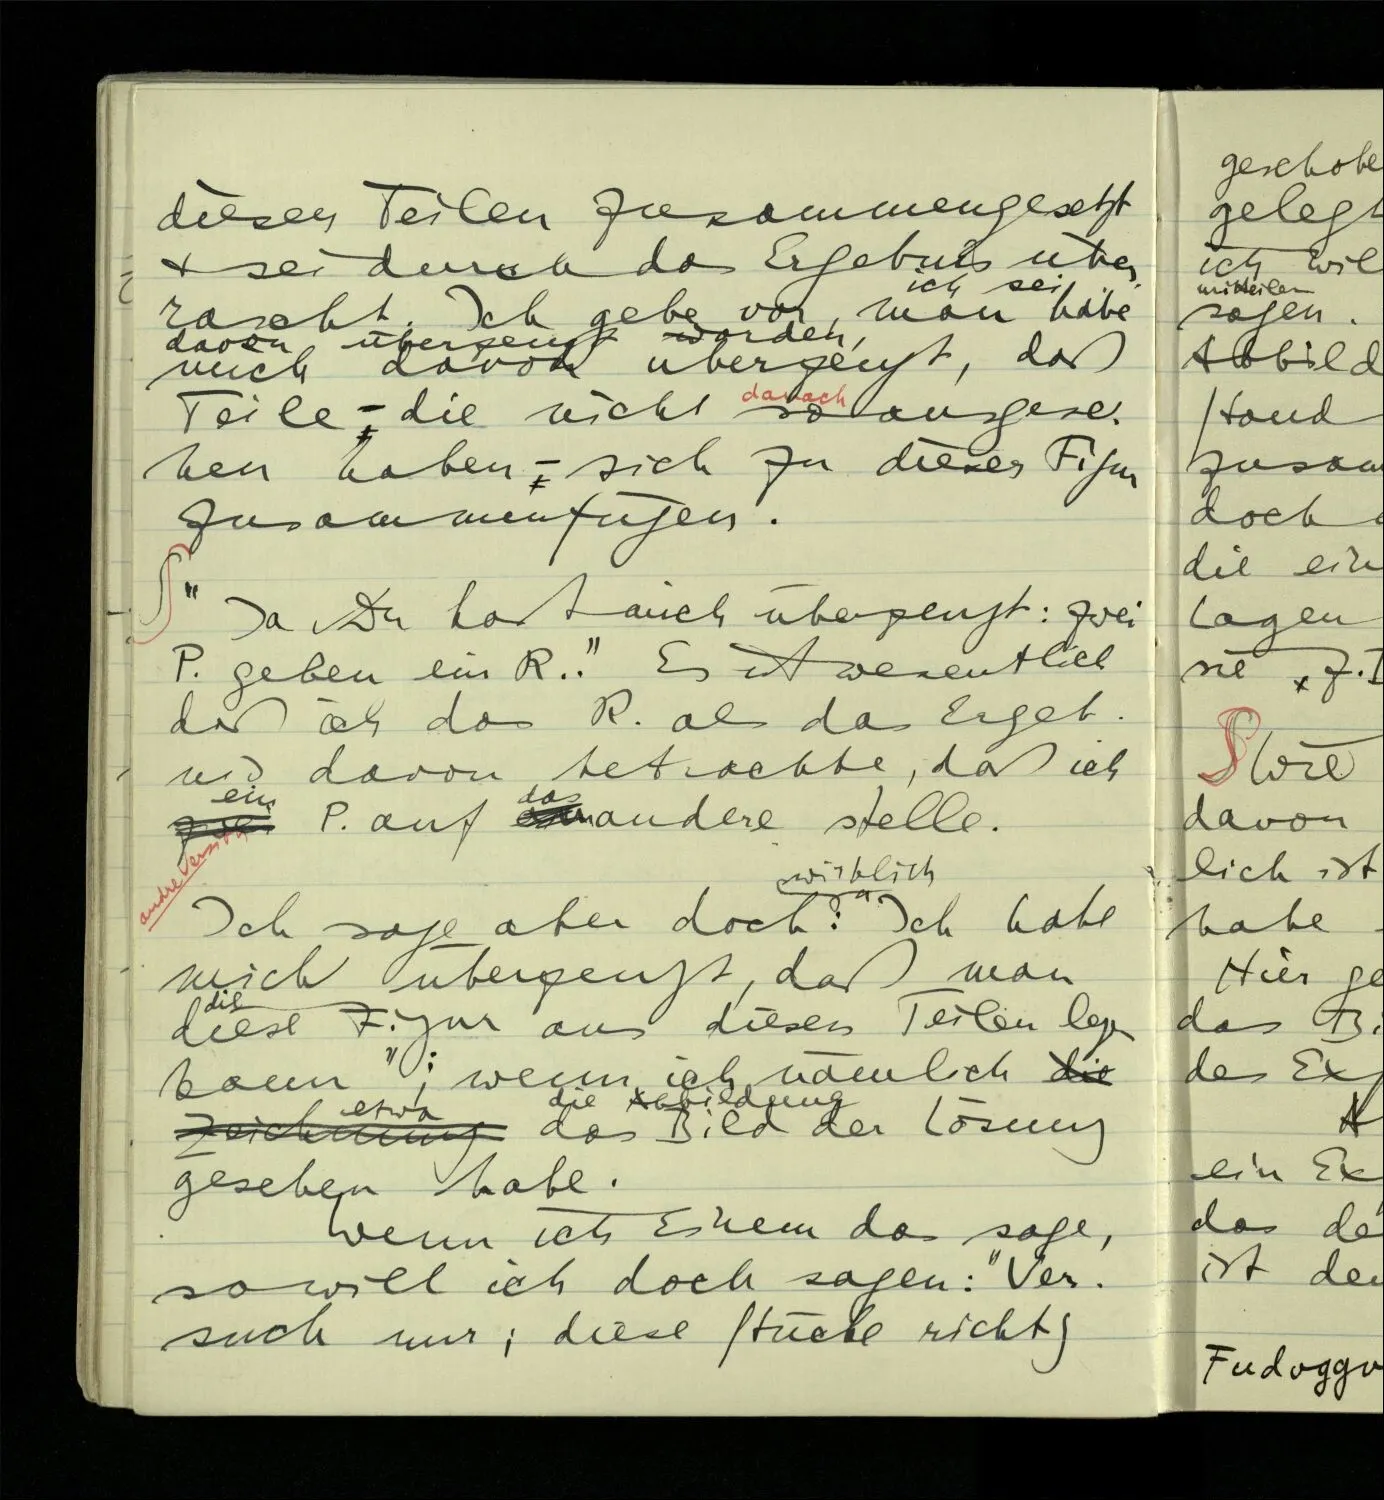 diesen Teilen zusammengesetzt
& sei durch das Ergebnis über-
ich sei
rascht. Ich gebe vor, man habe
davon überzeugt worden,
mich davon überzeugt, daß
danach
Teile – die nicht so ausgese-
hen haben – sich zu dieser Figur
zusammenfügen.
∫ " Ja Du hast mich überzeugt: zwei
P. geben ein R.." Es ist wesentlich
daß ich das R. als das Ergeb-
nis davon betrachte, daß ich
ein das
P. auf andere stelle.
andre Version
wirklich
Ich sage aber doch: "Ich habe
mich überzeugt, daß man
die
diese Figur aus diesen Teilen legen
kann"; wenn ich nämlich die
etwa die Abbildung
Zeichnung das Bild der Lösung
gesehen habe.
Wenn ich Einem das sage,
so will ich doch sagen: "Ver-
such nur; diese Stücke richtig
geschobe
gelegt
ich wil
mitteilen
sagen.
Abbild
Hand
zusam
doch
die ein
Lagen
sie z.
∫ Wre
davon
lich ist
habe
Hier ge
das Bi
des Exp
ein Ex
das de
ist den
Fudoggv